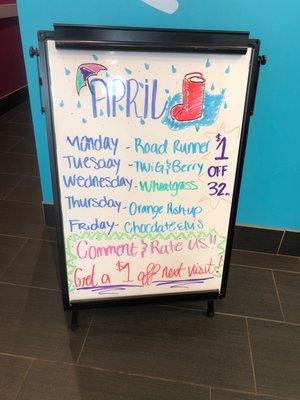 APRIL
Monday - Road Runner
Tuesday - Twig & Berry
Wednesday - Wheatgrass
Thursday - Orange Push up
Friday - Chocolate Elvis
$1
OFF
32.
Comment & Rate Us!!
Get a $1 off next visit!